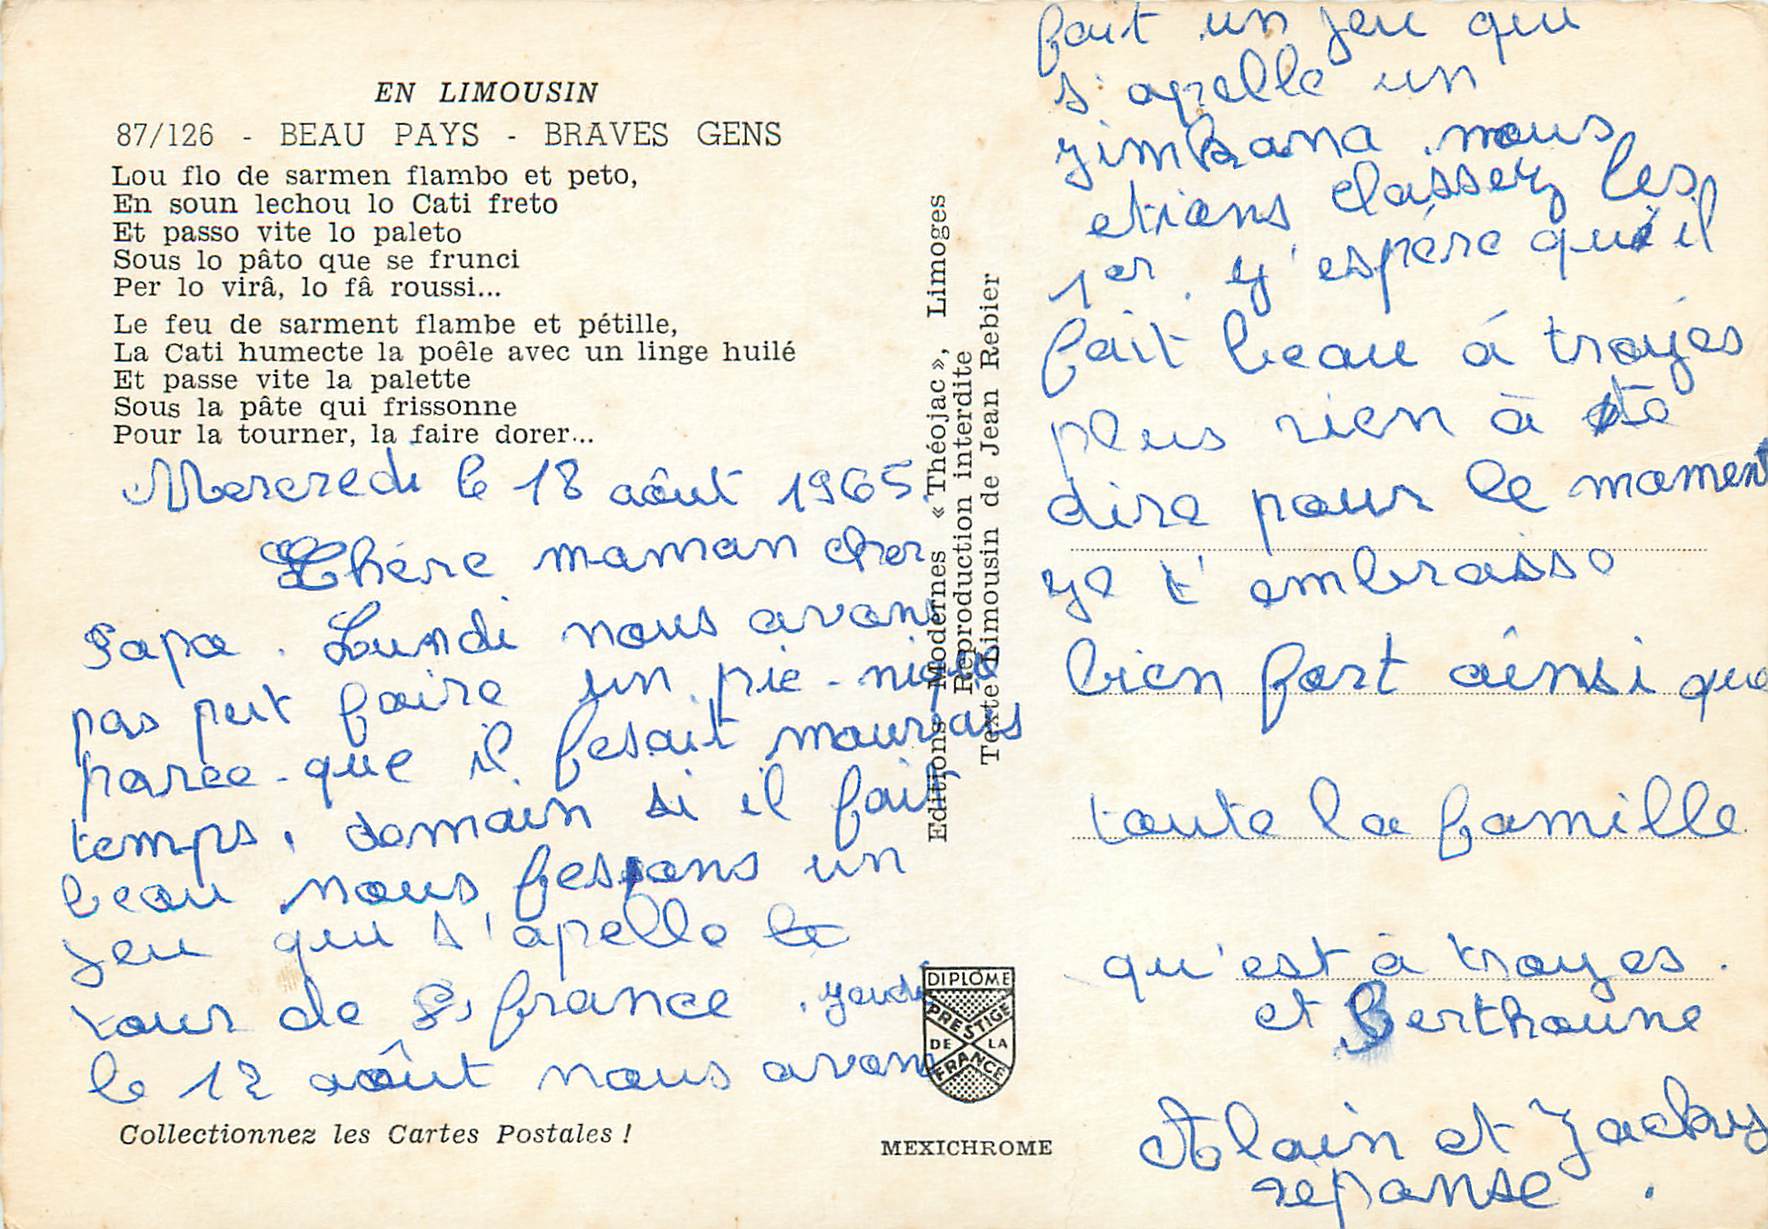 EN LIMOUSIN
87/126 - BEAU PAYS - BRAVES GENS
Lou flo de sarmen flambo et peto,
En soun lechou lo Cati freto
Et passo vite lo paleto
Sous lo pâto que se frunci
Per lo virâ, lo fâ roussi...
Le feu de sarment flambe et pétille,
La Cati humecte la poêle avec un linge huilé
Et passe vite la palette
Sous la pâte qui frissonne
Pour la tourner, la faire dorer...
Mercredi le 18 août 1965
Chére maman cher
Papa. Lundi nous avons
pas put faire un pic-nique
parce-que il fesait mauvais
temps, domain si il fait
beau nous fesions un
jeu qui s'apelle le
tour de france. jeudi
le 12 août nous avons
Collectionnez les Cartes Postales !
Editions Modernes « Théojac », Limoges
Reproduction interdite
Texte Limousin de Jean Rebier
DIPLOME
PRESTIGE
DE LA
FRANCE
MEXICHROME
fait un jeu qui
s'apelle un
jimkana nous
etions classez les
1er. j'espére qu'il
fait beau á troyes
plus rien à te
dire pour le moment
je t'embrasse
bien fort ainsi que
toute la famille
qu'est à troyes.
et Berthoune
Alain et Jacky
réponse.